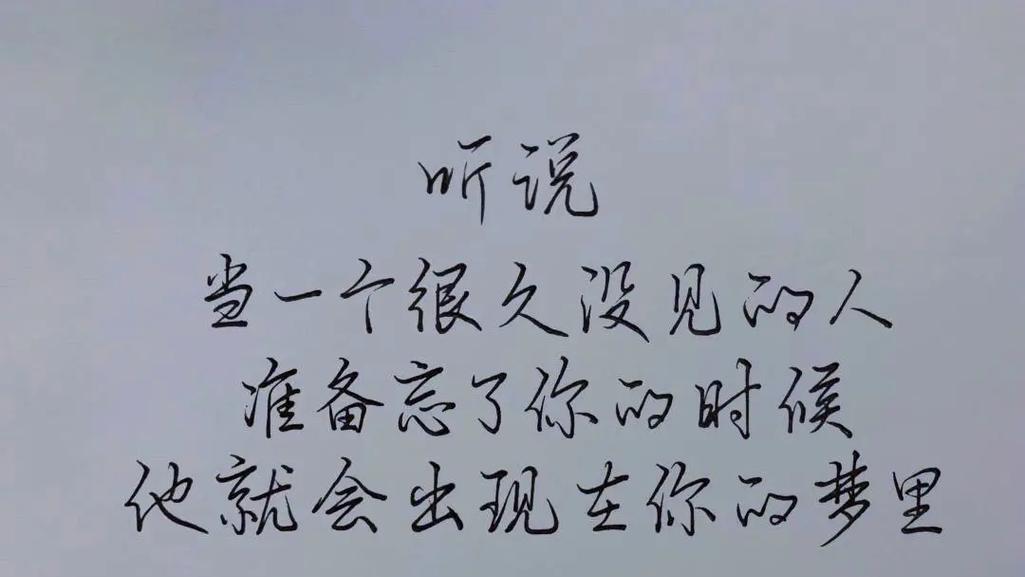 听说
当一个很久没见的人
准备忘了你的时候
他就会出现在你的梦里